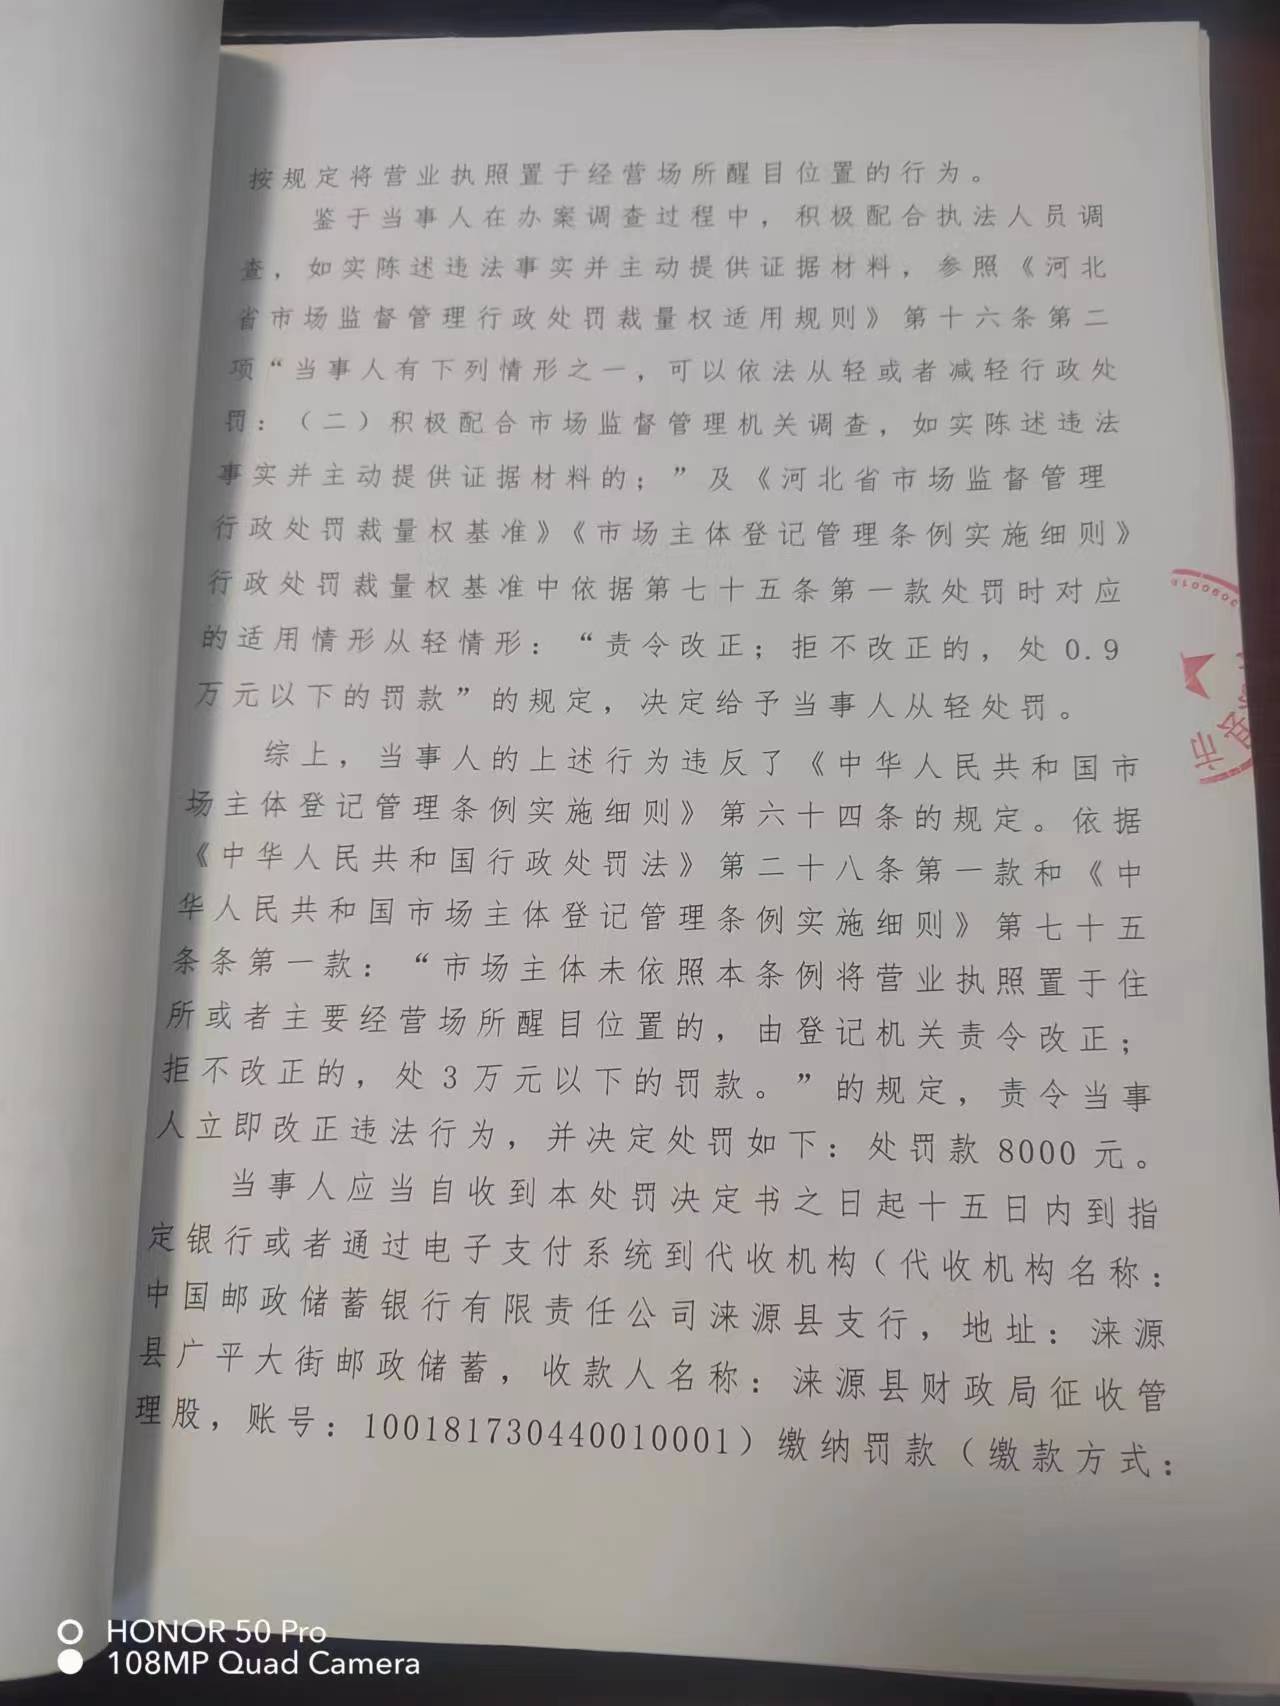 按规定将营业执照置于经营场所醒目位置的行为。
鉴于当事人在办案调查过程中，积极配合执法人员调
查，如实陈述违法事实并主动提供证据材料，参照《河北
省市场监督管理行政处罚裁量权适用规则》第十六条第二
项“当事人有下列情形之一，可以依法从轻或者减轻行政处
罚：（二）积极配合市场监督管理机关调查，如实陈述违法
事实并主动提供证据材料的；”及《河北省市场监督管理
行政处罚裁量权基准》《市场主体登记管理条例实施细则》
行政处罚裁量权基准中依据第七十五条第一款处罚时对应
的适用情形从轻情形：“责令改正；拒不改正的，处0.9
万元以下的罚款”的规定，决定给予当事人从轻处罚。
综上，当事人的上述行为违反了《中华人民共和国市
场主体登记管理条例实施细则》第六十四条的规定。依据
《中华人民共和国行政处罚法》第二十八条第一款和《中
华人民共和国市场主体登记管理条例实施细则》第七十五
条条第一款：“市场主体未依照本条例将营业执照置于住
所或者主要经营场所醒目位置的，由登记机关责令改正；
拒不改正的，处3万元以下的罚款。”的规定，责令当事
人立即改正违法行为，并决定处罚如下：处罚款8000元。
当事人应当自收到本处罚决定书之日起十五日内到指
定银行或者通过电子支付系统到代收机构（代收机构名称：
中国邮政储蓄银行有限责任公司涞源县支行，地址：涞源
县广平大街邮政储蓄，收款人名称：涞源县财政局征收管
理股，账号：100181730440010001）缴纳罚款（缴款方式：
县
市
HONOR 50 Pro
108MP Quad Camera